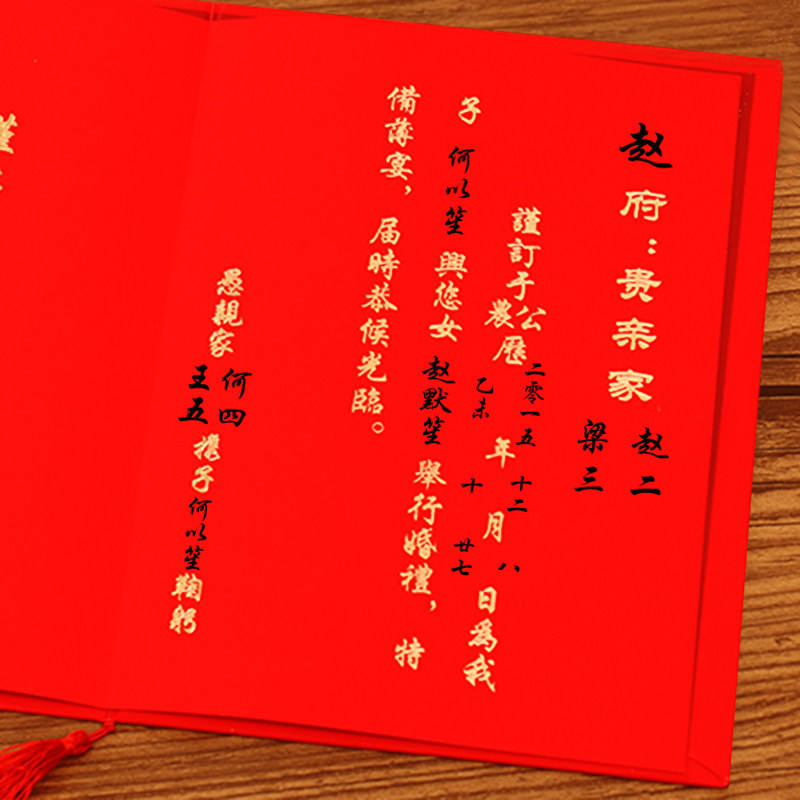 赵府：贵亲家 赵二
梁三
謹訂于公農歷 二零一五年十二月八日為我
乙未 十 廿七
子何以笙與您女赵默笙舉行婚禮，特
備薄宴，届時恭候光臨。
愚親家 何四 王五 携子何以笙鞠躬